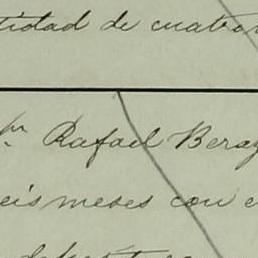 tidad de cuator
pr Rafael Beraz
eis meses con e